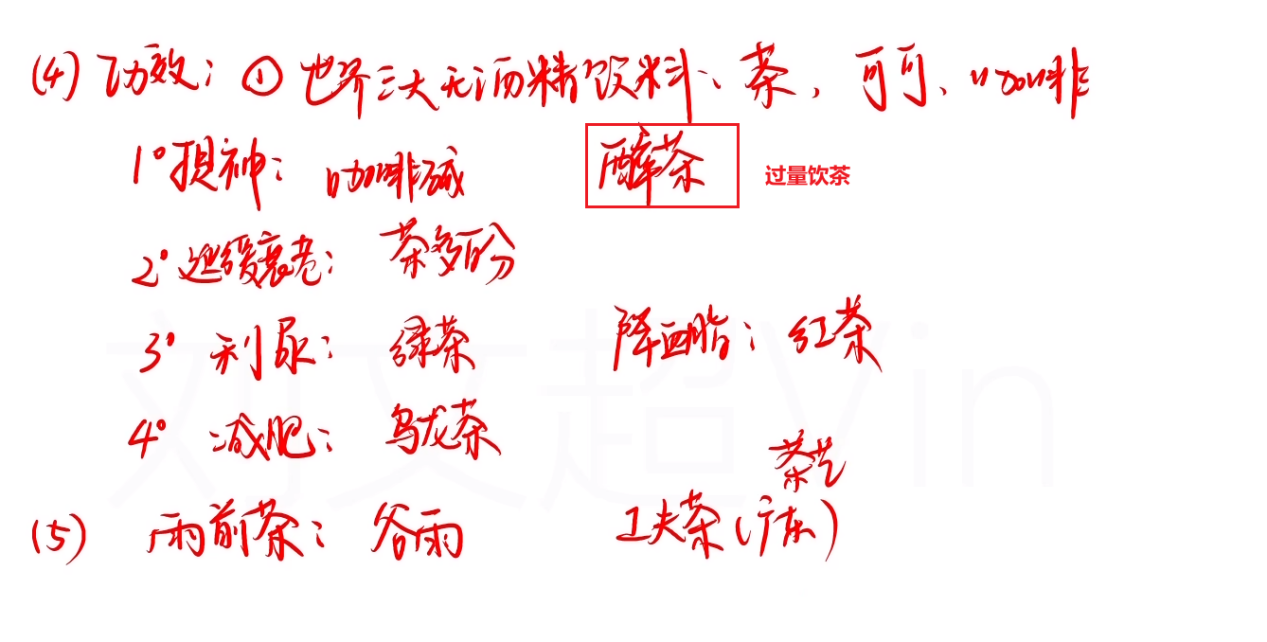 (4) 功效：① 世界三大无酒精饮料、茶，可可、咖啡
1° 提神：咖啡碱 醉茶 过量饮茶
2° 延缓衰老：茶多酚
3° 利尿：绿茶 降血脂：红茶
4° 减肥：乌龙茶
茶艺
(5) 雨前茶：谷雨 工夫茶(广东)
刘文超Vin